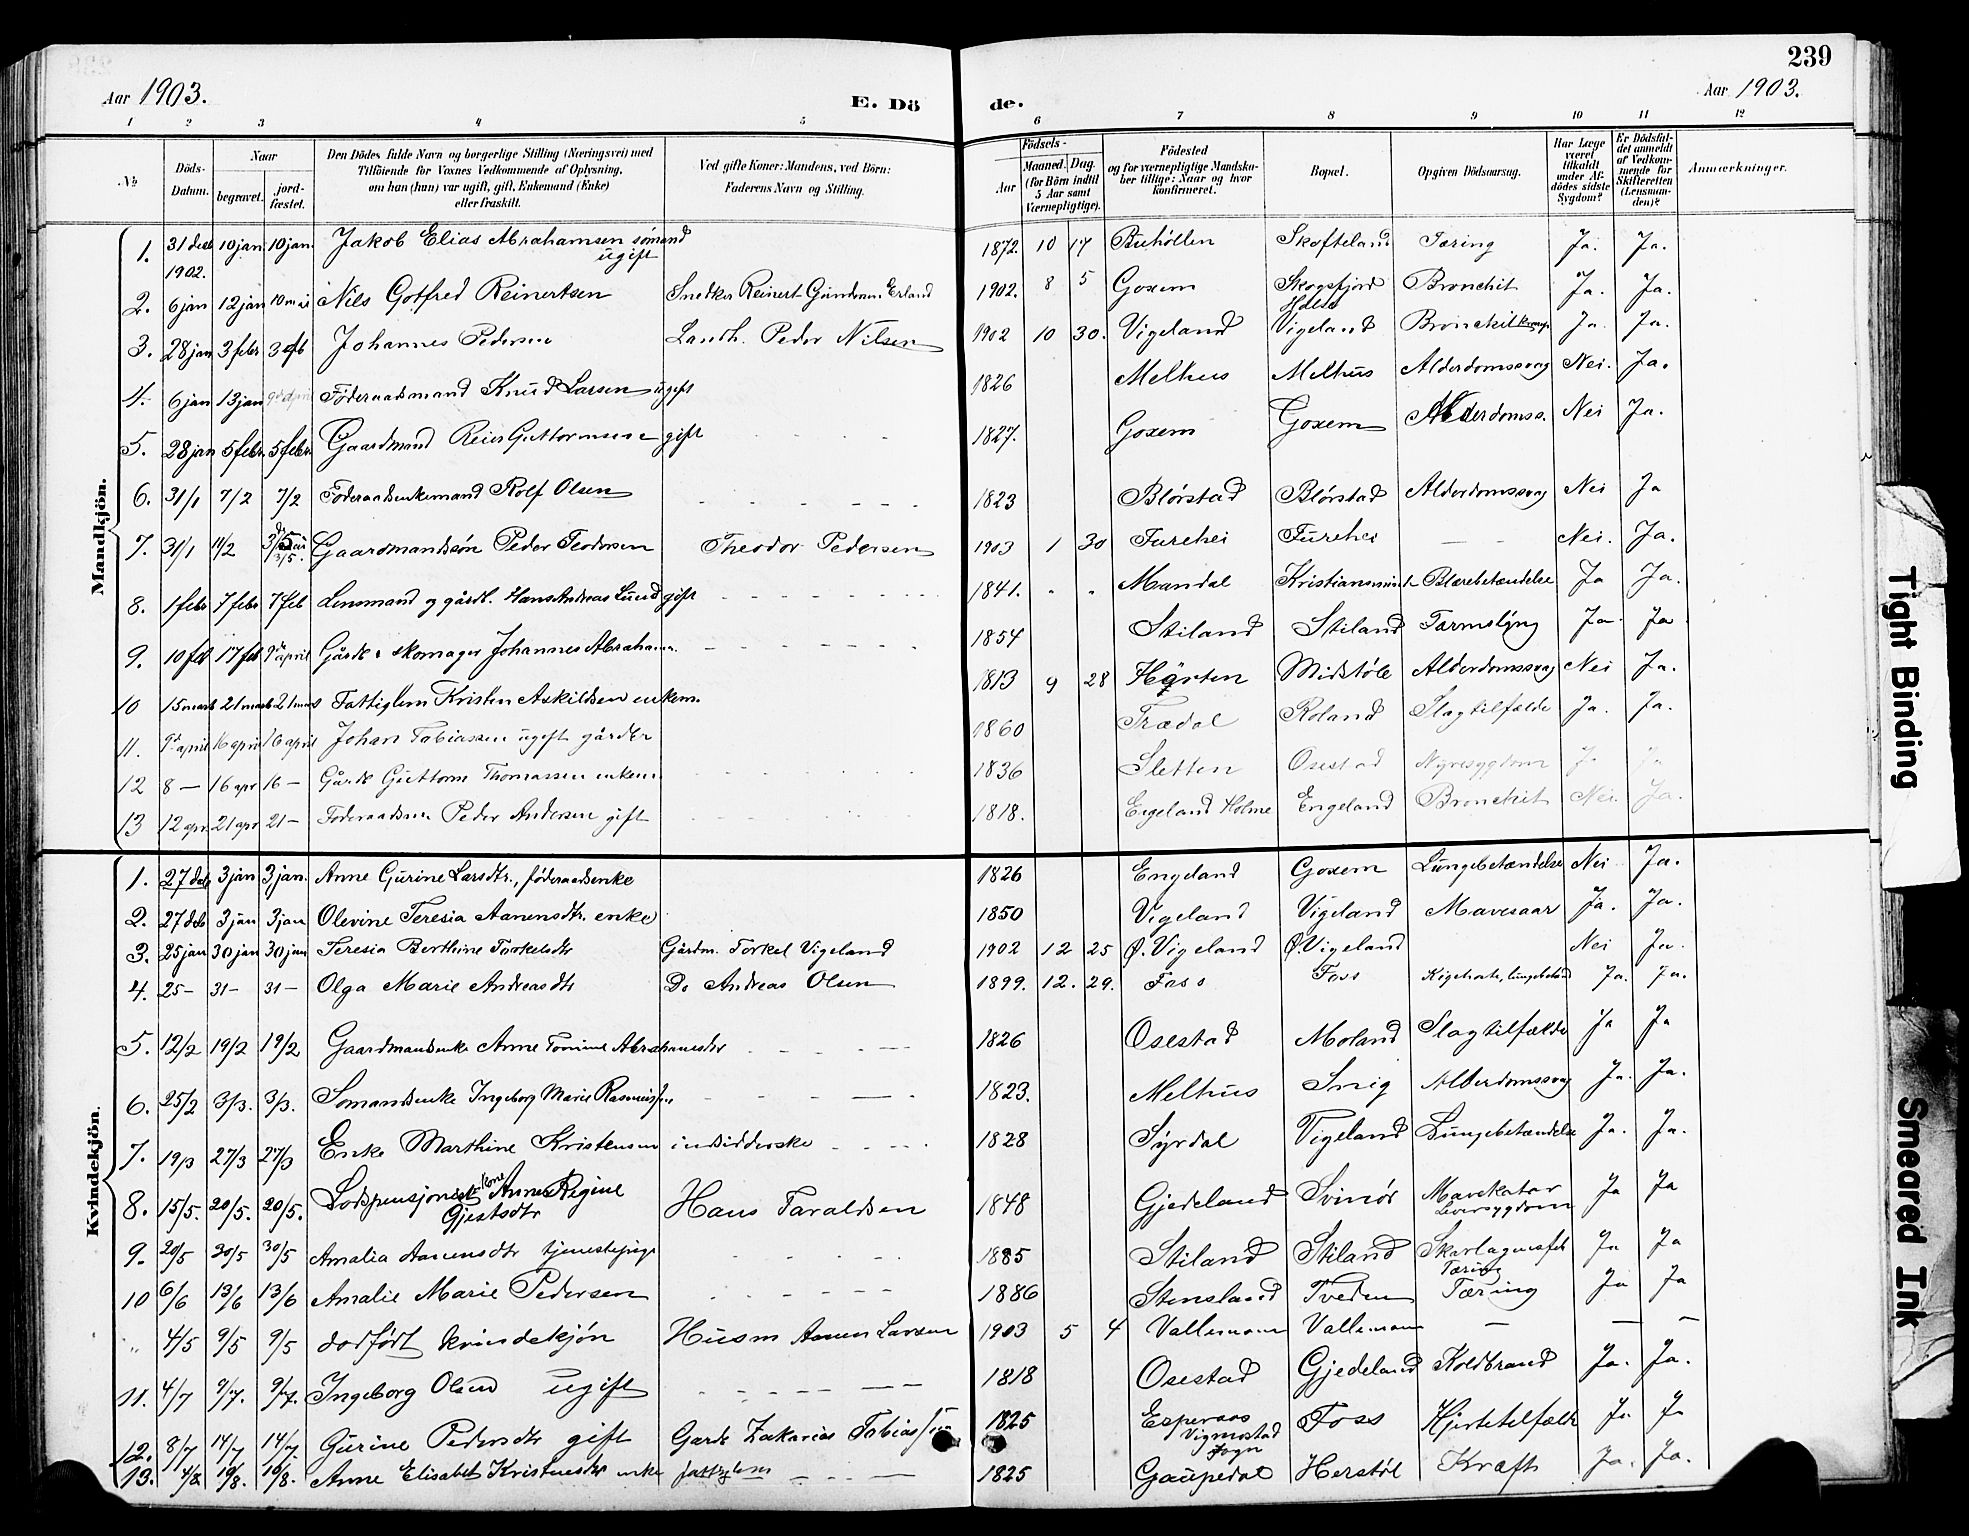 239
Aar 1903.
E. Dö
de.
Aar 1903.
1 2 3 4 5 6 7 8 9 10 11 12
№
Döds-Datum.
Naar
begravet.
jord-fæstet.
Den Dödes fulde Navn og borgerlige Stilling (Næringsvei) med
Tilföiende for Voxnes Vedkommende af Oplysning,
om han (hun) var ugift, gift, Enkemand (Enke)
eller fraskilt.
Ved gifte Koner: Mandens, ved Börn:
Faderens Navn og Stilling.
Födsels-
Aar
Maaned. Dag.
(for Börn indtil
5 Aar samt
Værnepligtige).
Födested
og for værnepligtige Mandska-
ber tillige: Naar og hvor
konfirmeret.
Bopæl.
Opgiven Dödsaarsag.
Har Læge
været
tilkaldt
under Af-
dödes sidste
Sygdom?
Er Dödsfal-
det anmeldt
af Vedkom-
mende for
Skifteretten
(Lensman-
den)?
Anmærkninger.
Mandkjön.
1. 31 decb 1902. 10 jan 10 jan Jakob Elias Abrahamsen sömand ugift 1872. 10 17 Skofteland Tæring Ja. Ja.
2. 6 jan 12 jan 10 mai Nils Gotfred Reinertsen Snedker Reinert Erland 1902. 8 5 Goxem Skogsfjord Holse Bronchit Ja. Ja.
3. 28 jan 3 febr 3 feb Johannes Pedersen Landh. Peder Nilsen 1902 10 30. Vigeland Vigeland Bronchit Ja. Ja.
4. 6 jan 13 jan 9de April Föderaadsmand Knud Larsen ugift 1826 Melhus Melhus Alderdomssvag Nei. Ja.
5. 28 jan 5 febr. 5 febr. Gaardmand Reier Guttormsen gift 1827. Goxem Goxem Alderdomss. Nei Ja.
6. 31/1 7/2 7/2 Föderaadsenkemand Rolf Olsen 1823 Blörstad Blörstad Alderdomssvag Nei Ja
7. 31/1 11/2 3/5 Gaardmandssön Peder Teodorsen Theodor Pedersen 1903 1 30 Furehei Furehei — — Nei. Ja.
8. 1 febr 7 febr 7 feb Lensmand og gårdb. Hans Andreas Lund gift 1841. " " Mandal Kristiansund Blærebetændelse Ja Ja.
9. 10 feb 17 feb 9de april Gårdb. & skomager Johannes Abraham. 1854 Stiland Stiland Tarmslyng Ja. Ja
10 15 marts 21 marts 21 mars Fattiglem Kristen Askildsen enkem. 1813 9 28 Midstöle Alderdomssvag Nei Ja.
11. 9de april 16 april 16 april Johan Tobiassen ugift gårdbr 1860 Trædal Roland Slagtilfælde Ja. Ja.
12 8 — 16 apr 16 — Gårdb Guttorm Thomassen enkem 1836 Sletten Osestad Nyresygdom Ja Ja
13 12 apr. 21 apr 21 — Föderaadsm Peder Andersen gift 1818. Eigeland Holme Engeland Bronchit Nei. Ja.
Kvindekjön.
1. 27 deb 3 jan 3 jan. Anne Gurine Larsdtr., föderaadsenke 1826 Engeland Goxem Lungebetændelse Nei Ja.
2. 27 deb 3 jan 3 jan Olevine Teresia Aanensdtr. enke 1850 Vigeland Vigeland Mavesaar Ja. Ja.
3. 25 jan 30 jan 30 jan Teresia Berthine Torkelsdtr Gårdm. Torkel Vigeland 1902 12 25 Ø. Vigeland Ø. Vigeland Nei Ja.
4. 25 — 31 — 31 — Olga Marie Andreasdtr Do Andreas Olsen 1899. 12. 29. Foss Foss Kighoste, lungebetænd Ja. Ja.
5. 12/2 19/2 19/2 Gaardmandsenke Anne Tomine Abrahamsdtr 1826 Osestad Moland Slagtilfælde Ja Ja
6. 25/2 3/3. 3/3. Sömandsenke Ingeborg Marie 1823. Melhus Snig Alderdomssvag Ja. Ja.
7. 19/3 27/3 27/3 Enke Marthine Kristensen indsidderske 1828 Syrdal Vigeland Lungebetændelse Ja. Ja.
8. 15/5. 20/5. 20/5. Lodspensjonist kone Anne Regine Gjestsdtr Hans Taraldsen 1848 Gjedeland Svinör Mavekatar Leversygdom Ja Ja
9. 20/5 30/5 30/5 Amalia Aanensdtr tjenestepige 1885 Stiland Stiland Skarlagensfeb Tæring Ja Ja
10 6/6 13/6 13/6 Amalie Marie Pedersen 1886 Stensland Tveden Tæring Ja Ja
" 4/5 9/5 9/5 dödfödt kvindekjön Husm Aanen Larsen 1903 5 4 Vallemoen Vallemoen — — —
11. 4/7 9/7. 9/7. Ingeborg Olsen ugift 1818 Osestad Gjedeland Koldbrand Ja. Ja.
12. 8/7 14/7 14/7 Gurine Pedersdtr gift Gardb Zakarias Tobiassen 1825 Espersas Vigmostad sogn Foss Hjertetilfælde Ja Ja
13. 4/8 10/8. 10/8. Anne Elisabet Kristensdtr enke fattiglem 1825 Gaupedal Herstöl Kræft Ja. Ja.
Tight Binding
Smeared Ink